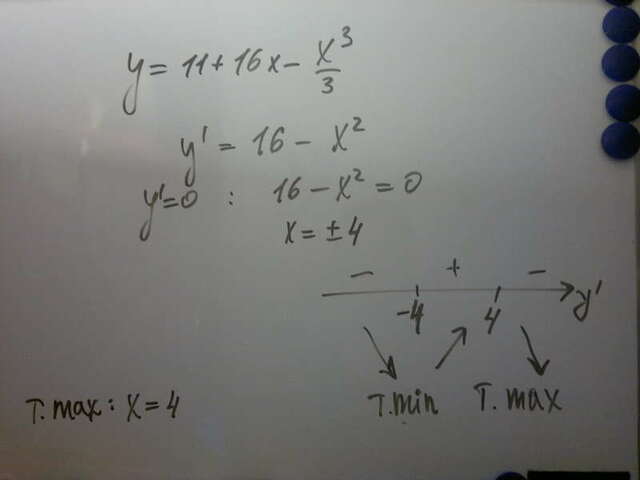 y = 11 + 16x - x³/3
y' = 16 - x²
y'=0 : 16 - x² = 0
x = ± 4
- + -
-4 4 y'
т.min т.max
т.max : x = 4